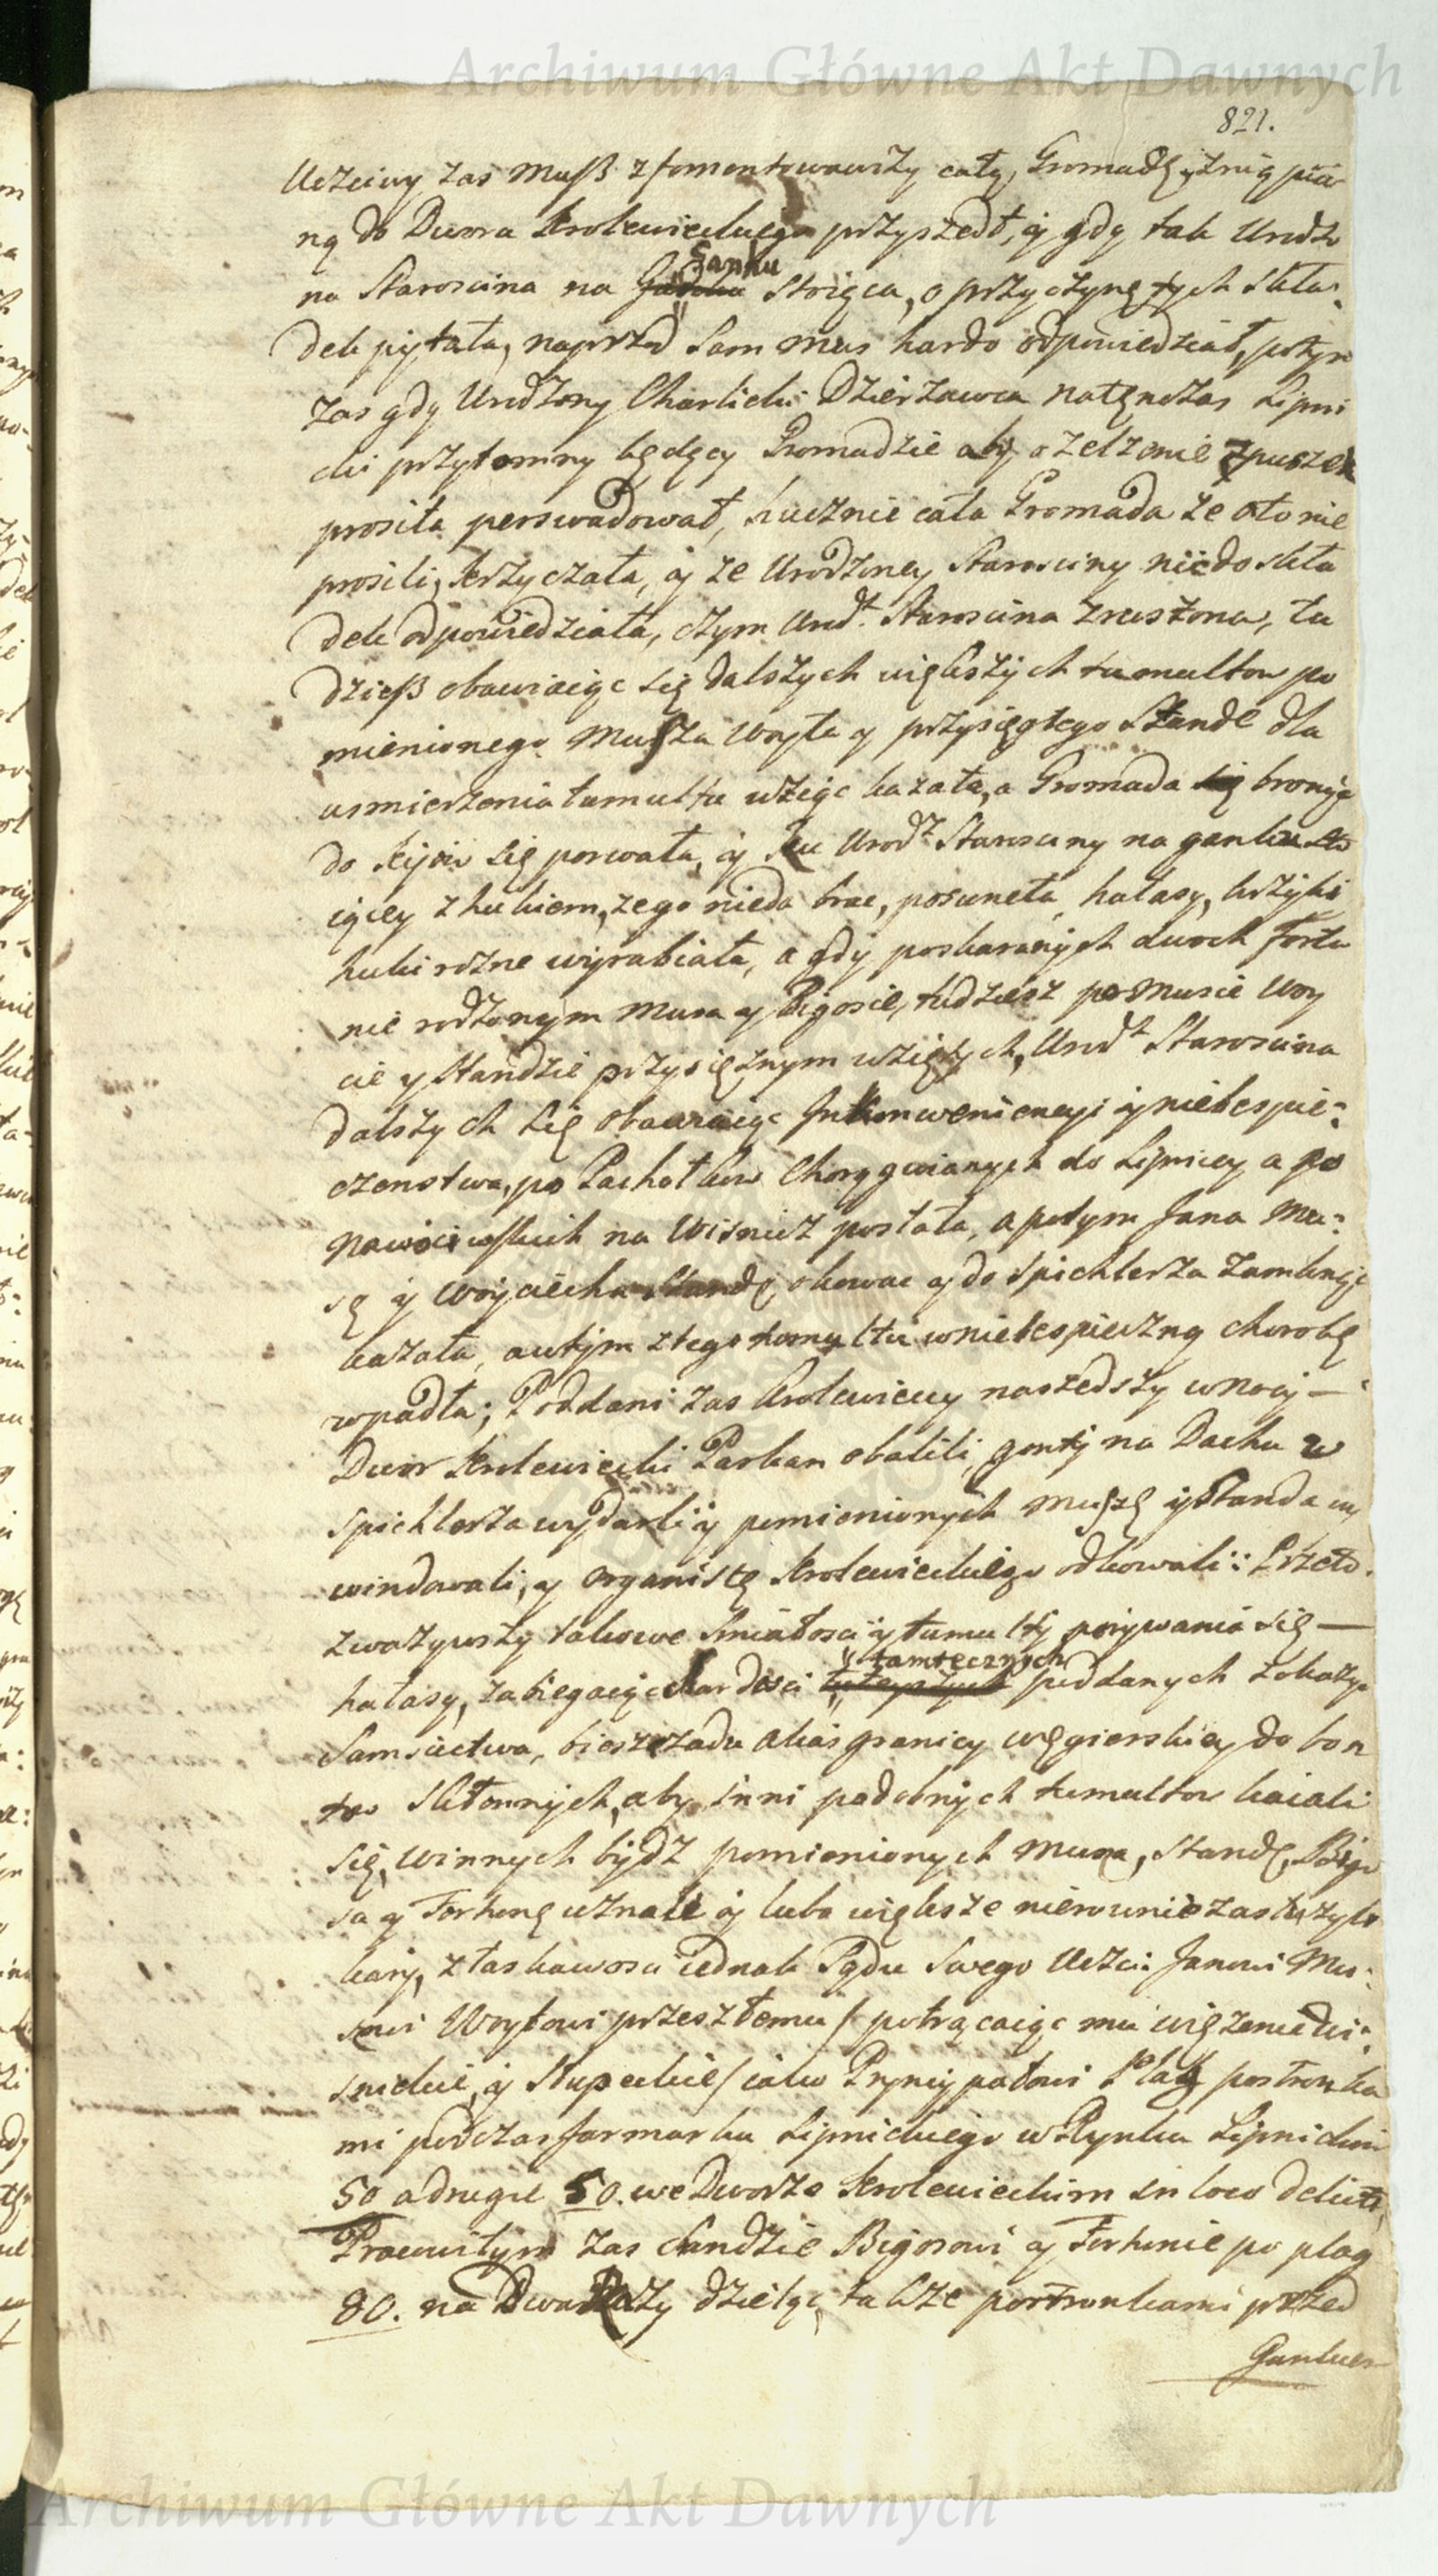 Archiwum Główne Akt Dawnych
821.
Uczciwy zas Muß zfomentowawszy całą Gromadę, y znią pia
ną do Dwora Krolewieckiego przyszedł, y gdy tak Urodzo
na Staroscina na Ganku stoiąca, o przyczynę tych skła:
dek pytała, naprzod sam Mus hardo odpowiedział, potym
zas gdy Urodzony Charlicki Dzierzawca natęnczas Lipni
cki przytomny będący Gromadzie aby o zelzenie z puszek
prosiła perswadował, hucznie cała Gromada ze oto nie
prosili, krzyczała, y ze Urodzoney Starosciny nic do skła
dek odpowiedziała, czym Urodz. Staroscina zruszona, tu
dzieß obawiaiąc się dalszych większych tumultow po
mienionego Musza Woyta y przysięgłego Standę dla
usmierzenia tumultu wziąc kazała, a Gromada się bronyc
do kiyow się porwała, y ku Urodz. Starosciny na ganku sto
iącey z hukiem, zego nieda brac, posuneła, hałasy, krzyki
huki rozne wyrabiała, a gdy poskaranych dwoch Fortu
nie rodzonym Musa y Bigosie, tudziesz po Musie Woy
cie y Standzie przysięznym wziętych, Urodz. Staroscina
dalszych się obawiaiąc Inkonweniencyi y niebespie:
czenstwa, po Pachołkow Chorągwianych do Lipnicy a po
na Wisnicz posłała, a potym Jana Mu:
sę y Woyciecha Standę okować y do Spichlerza zamknąc
kazała, a wtym ztego tomultu w niebespieczną chorobę
wpadła; Poddani zas Krolewieccy naszedszy w nocy —
Dwor Krolewiecki Parkan obalili, gonty na Dachu w
Spichlerza wydarli y pomienionych Muszę y Standa wy
windowali, y Organistę Krolewieckiego odkowali: Przeto
zwazywszy takowe smiałosci y tumulty porywania się —
hałasy, zabiegaiąc hardosci tamtecznych poddanych z okazyi
Samsiectwa, bieszczadu alias granicy węgierskiey do bon
tow skłonnych, aby inni podobnych tumultow kaiali
się, winnych bydz pomienionych Musa, Standę, Bigo
sa y Fortunę uznał y lubo większe nierownie zasłuzyli
kary, z łaskawosci iednak Sądu Swego Uczci: Janowi Mu:
sowi Woytowi przeszłemu / potrącaiąc mu więzenie Wi:
snickie, y Słupeckie / iako Pryncypałowi Plag postronka
mi podczas Jarmarku Lipnickiego w Rynku Lipnickim
50 a drugie 50. we Dworze Krolewieckim in loco delicti,
Pracowitym zas Standzie Bigosowi y Fortunie po plag
80. na Dwa Razy dzieląc, takze postronkami przed
Gankiem
Archiwum Główne Akt Dawnych